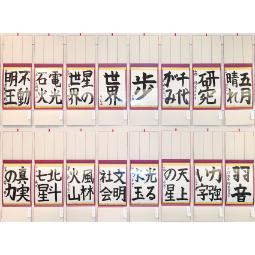 五月晴れ
研究
千代がみ
歩
世界
星の世界
電光石火
不動明王
羽音
力強い字
天上の星
光る水
文明社会
風林火山
北斗七星
真実の力